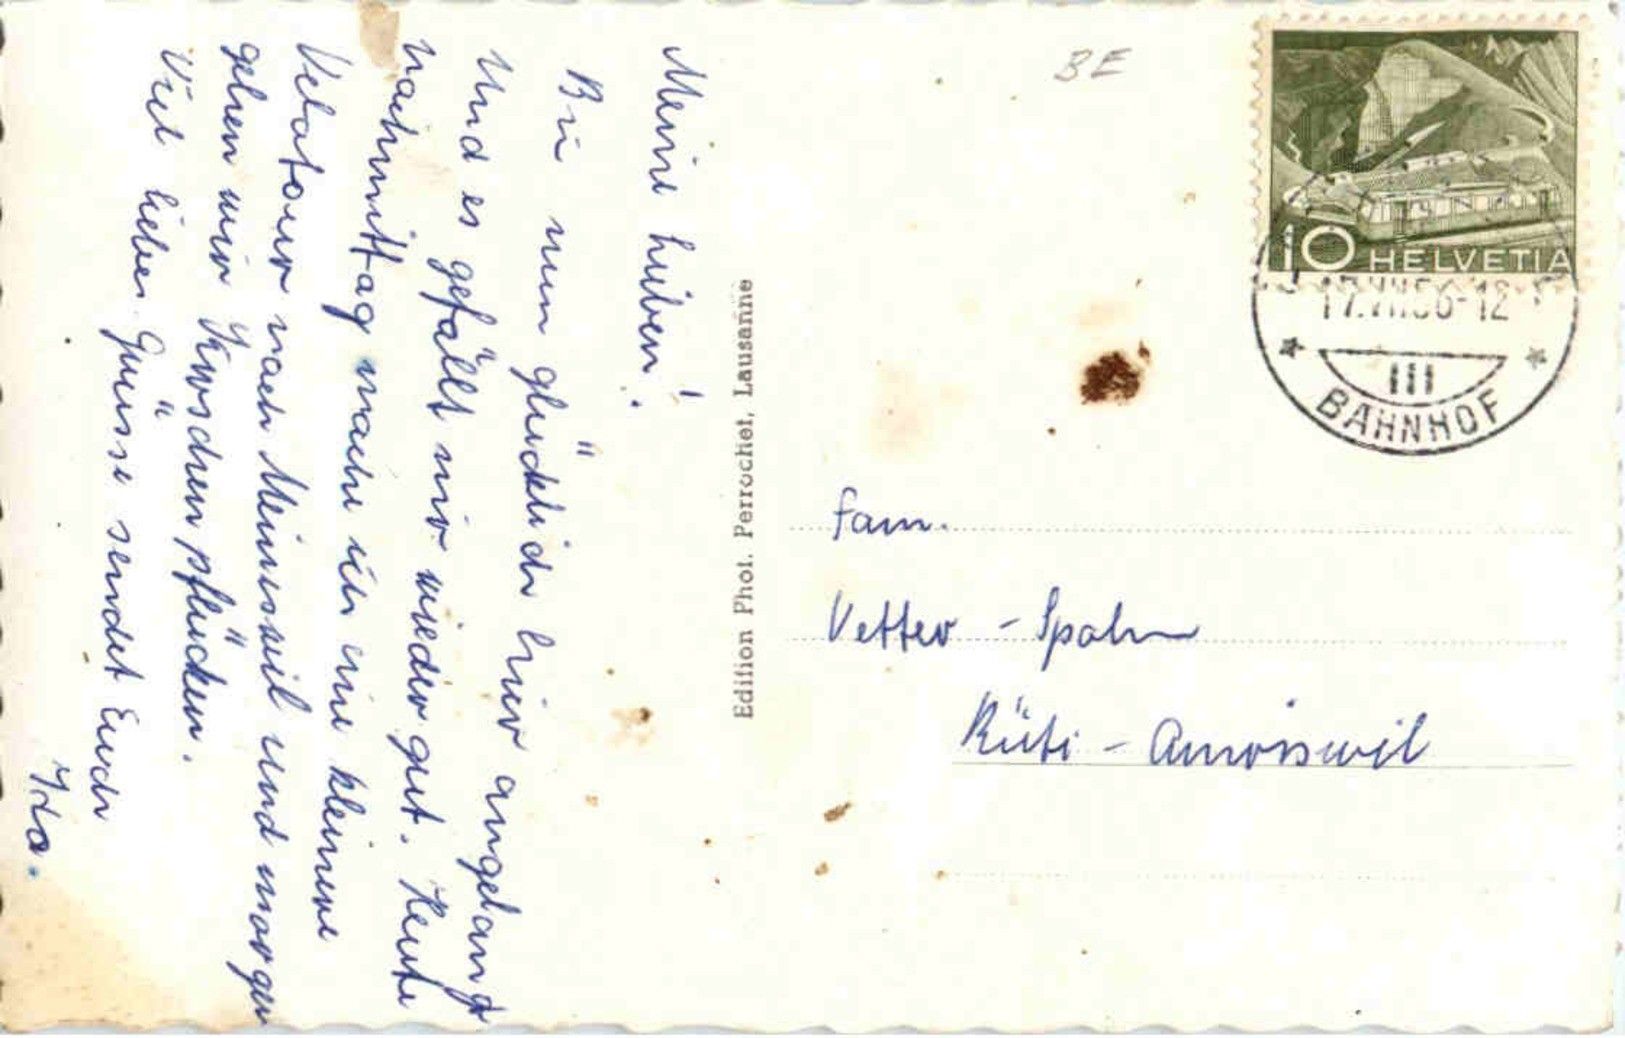 Meine Lieben!
Bin nun glücklich hier angelangt
und es gefällt mir wieder gut. Heute
nachmittag mache ich eine kleinere
Velotour nach Meiniswil und morgen
gehen wir Kirschen pflücken.
Viel liebe Grüsse sendet Euch
Ida.
Edition Phot. Perrochet, Lausanne
BE
10 HELVETIA
17.VII.56-12
III
BAHNHOF
Fam.
Vetter - Spahn
Rüti - Amriswil